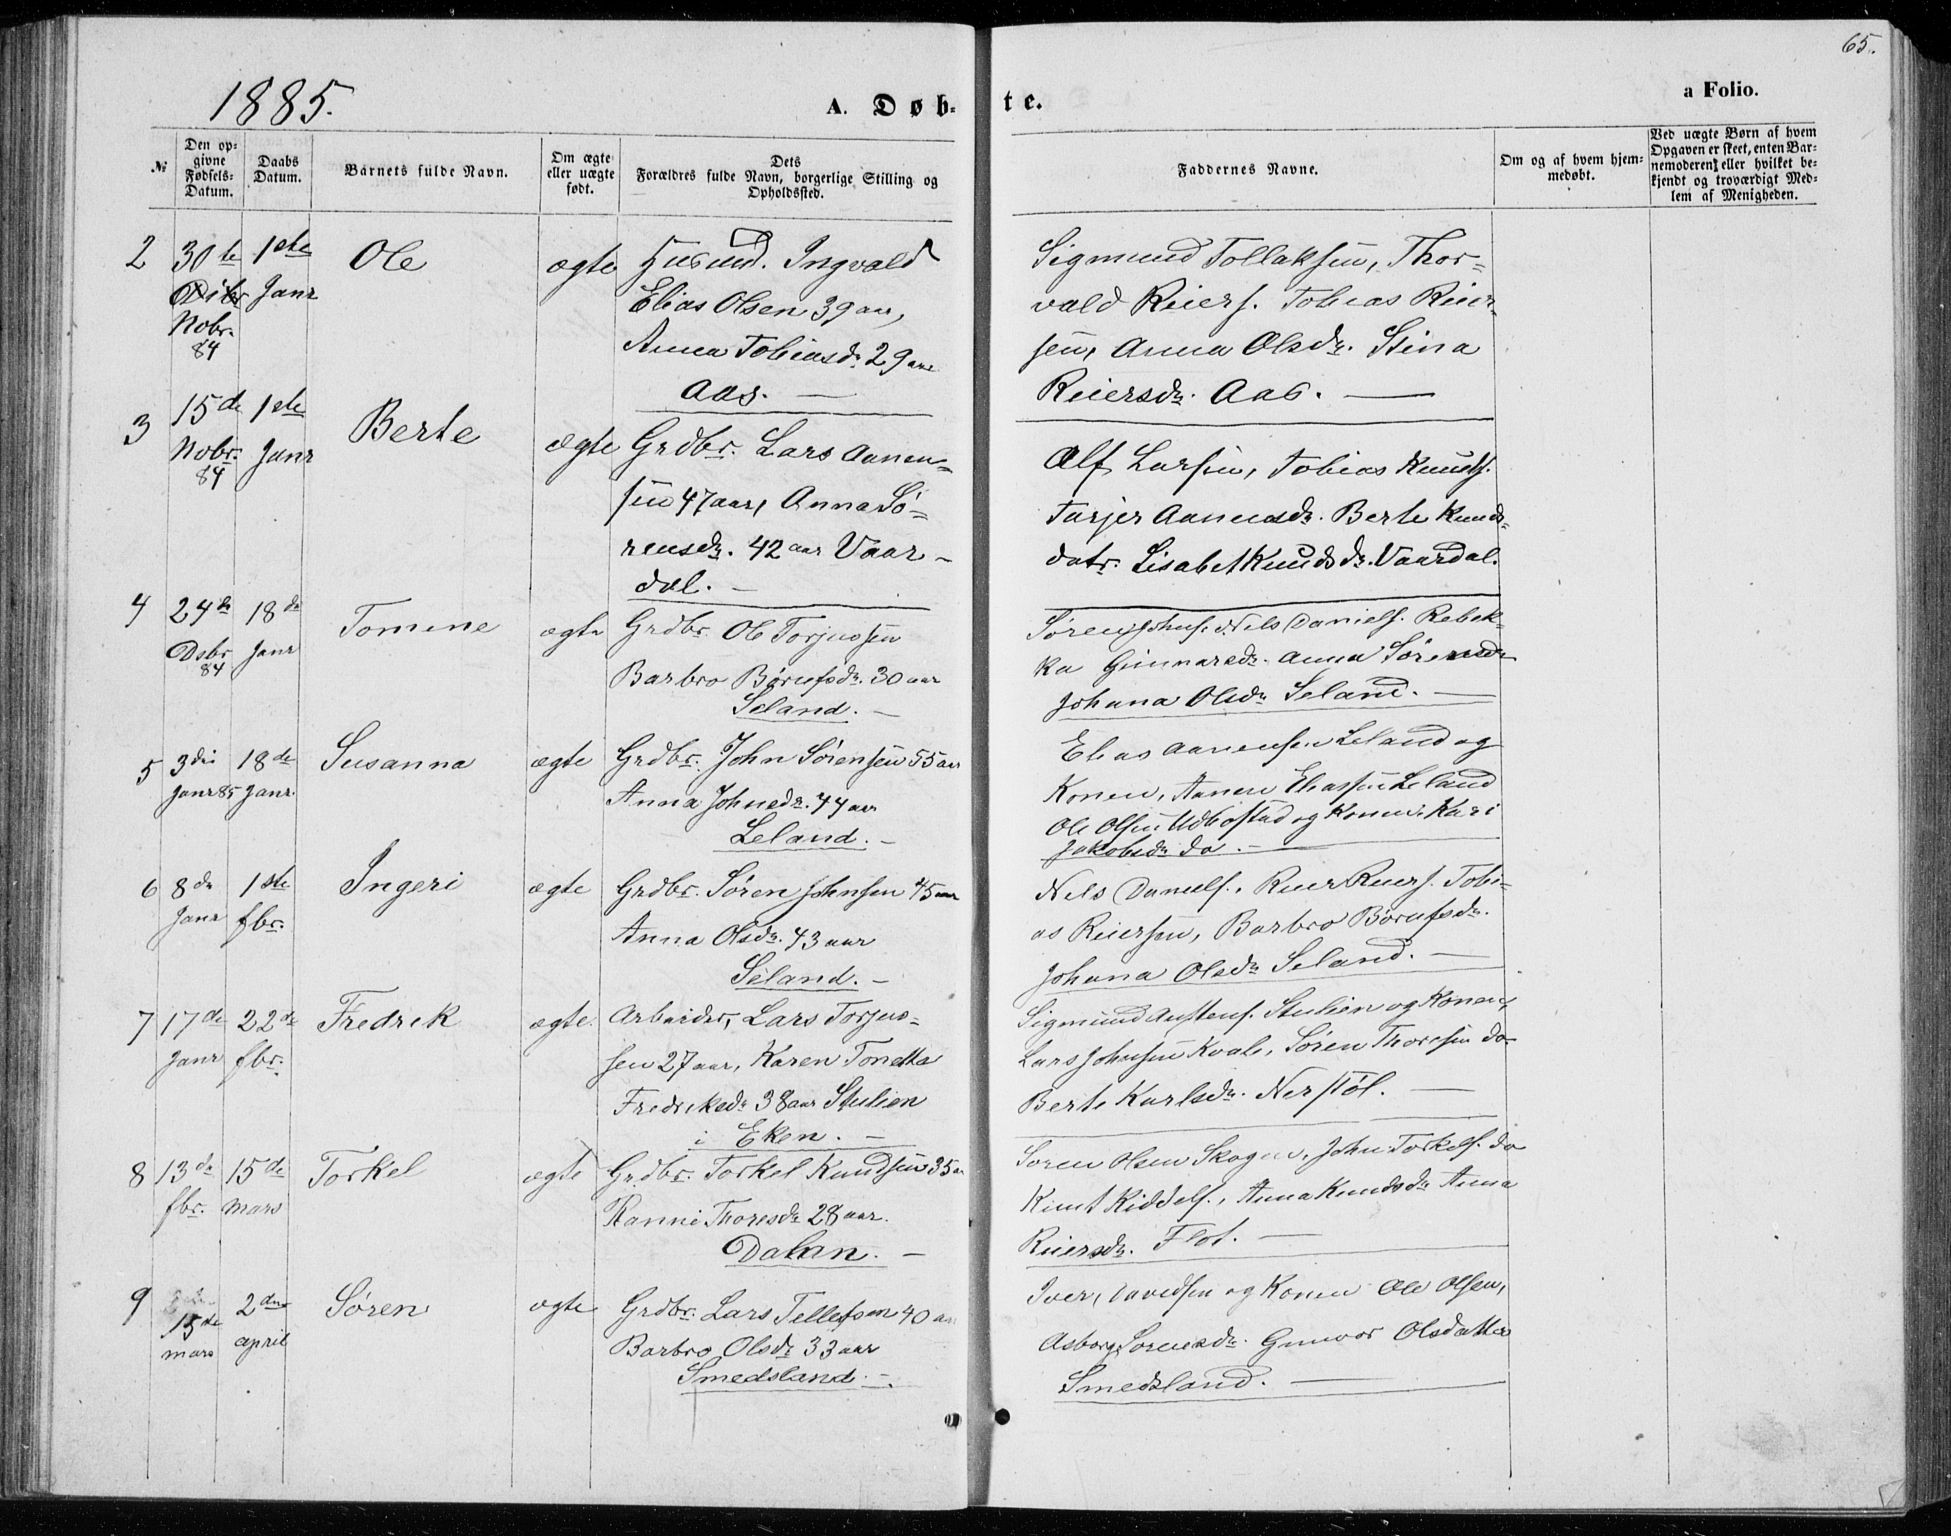 65.
1885.
A. Døb-
te.
a Folio.
№
Den op-
givne
Fødsels-
Datum.
Daabs
Datum.
Barnets fulde Navn.
Om ægte
eller uægte
født.
Dets
Forældres fulde Navn, borgerlige Stilling og
Opholdssted.
Faddernes Navne.
Om og af hvem hjem-
medøbt.
Ved uægte Børn af hvem
Opgaven er skeet, enten Bar-
nemoderen eller hvilket be-
kjendt og troværdigt Med-
lem af Menigheden.
2
30te
Nobr.
84
1ste
Janr
Ole
ægte
Husmd. Ingvald
Elias Olsen 39 aar,
Anna Tobiasdr. 29 aar
Aas. —
Sigmund Tollaksen, Thor-
vald Reiers. Tobias Reier-
sen, Anna Olsdr. Stina
Reiersdr. Aas. —
3
15de
Nobr.
84
1ste
Janr
Berte
ægte
Grdbr. Lars Aanen-
sen 47 aar, Anna Sø-
rensdr. 42 aar Vaar-
dal. —
Alf Larsen, Tobias Knuds.
Tarjer Aanensdr. Berte Knuds-
datr. Lisabet Knudsdr. Vaardal.
4
24de
Dsbr
84
18de
Janr
Tomine
ægte
Grdbr. Ole Torjussen
Barbro Børufsdr. 30 aar
Seland. —
Søren Johns. Nels Daniels. Rebek-
ka Gunnarsdr. Anna Sørensdr
Johana Olsdr Seland. —
5
3die
Janr 85
18de
Janr.
Susanna
ægte
Grdbr. John Sørensen 55 aar
Anna Johnsdr. 44 aar
Leland. —
Elias Aanensen Leland og
Konen, Aanen Eliassen Leland
Ole Olsen Udbostad og Konen Kari
Jakobsdr do. —
6
8de
Janr
1ste
fbr.
Ingeri
ægte
Grdbr. Søren Johnsen 45 aar
Anna Olsdr. 43 aar
Seland. —
Nels Daniels., Reier Reiers. Tobi-
as Reiersen, Barbro Børufsdr.
Johana Olsdr Seland. —
7
17de
Janr
22de
fbr.
Fredrik
ægte.
Arbeider, Lars Torjus-
sen 27 aar, Karen Tonetta
Fredriksdr 38 aar Stulien
i Eken. —
Sigmund Austens. Stulien og Konen,
Lars Johnsen Kvale, Søren Thoresen do
Berte Karlsdr. Nerstöl. —
8
13de
fbr.
15de
mars
Torkel
ægte
Grdbr. Torkel Knudsen 35 a
Ranni Thoresdr 28 aar.
Dalan. —
Søren Olsen Skogen, John Torkels. do
Knut Kiddels., Anna Knudsdr Anna
Reiersdr. Flot. —
9
15de
mars
2den
april
Søren
ægte
Grdbr. Lars Tellefsen 40 aar
Barbro Olsdr 33 aar
Smedsland. —
Iver Davidsen og Konen Ole Olsen,
Asborg Sørensdr. Gunvor Olsdatter
Smedsland. —